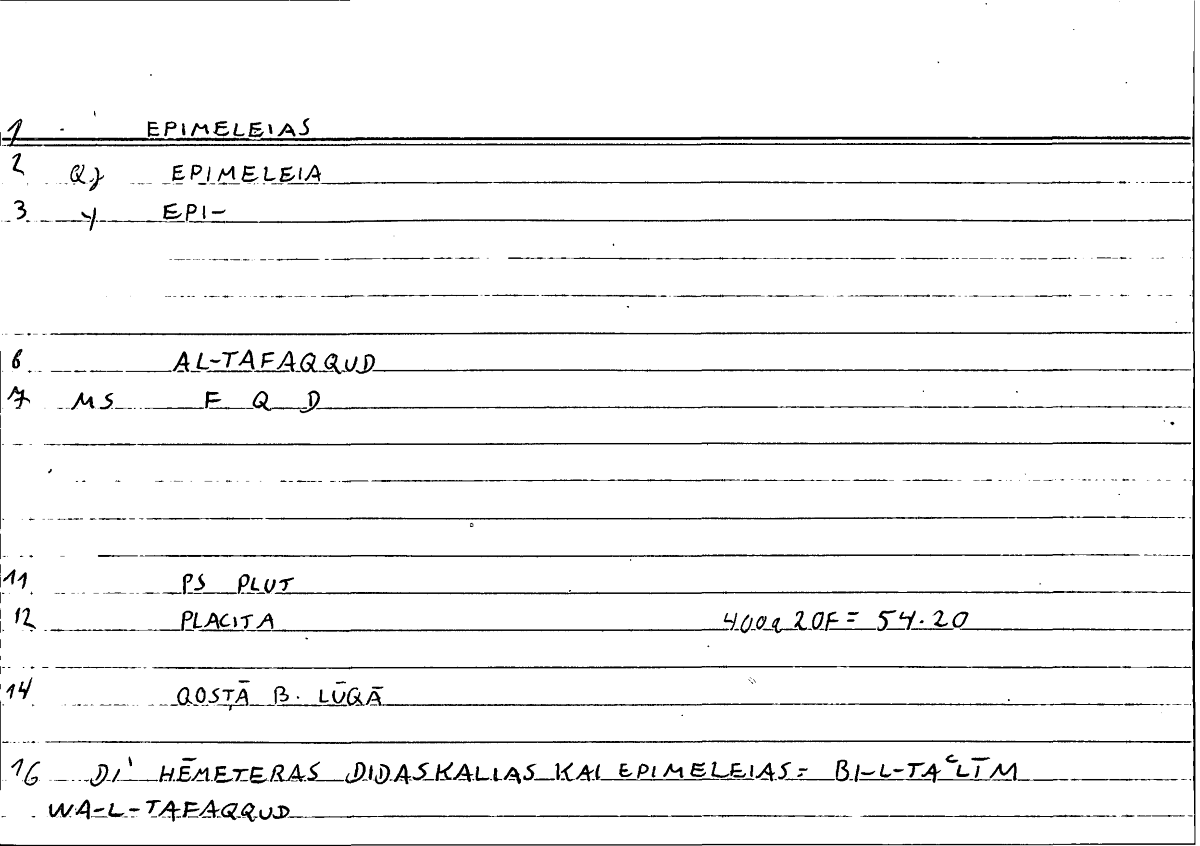 1 EPIMELEIAS
2 EPIMELEIA
3 EPI-
6 AL-TAFAQQUD
7 MS F Q D
11 PS PLUT
12 PLACITA 400a 20F = 54.20
14 QOSṬĀ B. LŪQĀ
16 DI' HĒMETERAS DIDASKALIAS KAI EPIMELEIAS = BI-L-TAᶜLĪM
WA-L-TAFAQQUD